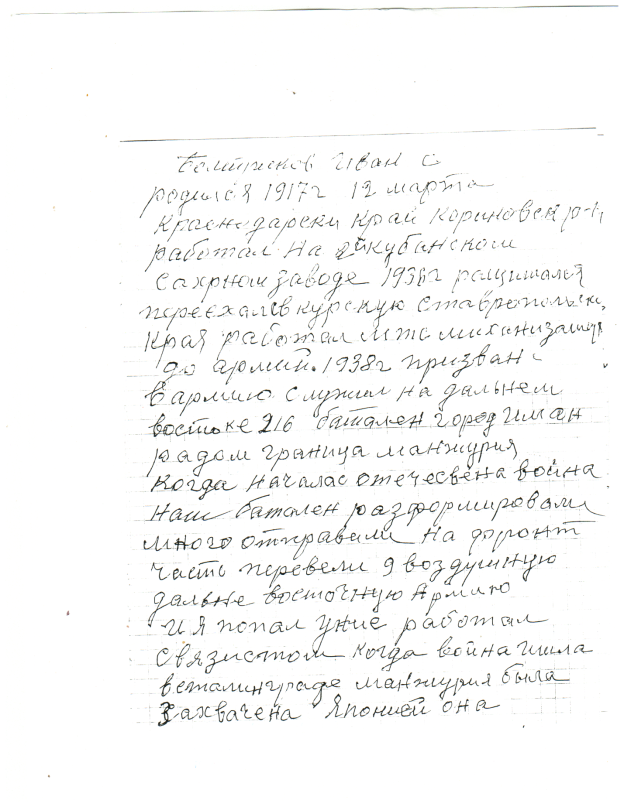 Иван С
родился 1917г 12 марта
Краснодарски край Кориновск р-н,
работал на кубанском
сахрном заводе 1936г
переехал в курскую Ставропольск,
края работал мтс миханизатор
до армий. 1938г призван
в армию служил на дальнем
востоке 216 баталён город Иман
радом граница манжурия
когда началас отечесвена война
наш баталён разформировали
много отправели на форонт
часть перевели 9 воздушную
дальне восточную Армию
и я попал уние работал
связистом когда война шла
всталинграде манжурия была
Захвачена Японией она